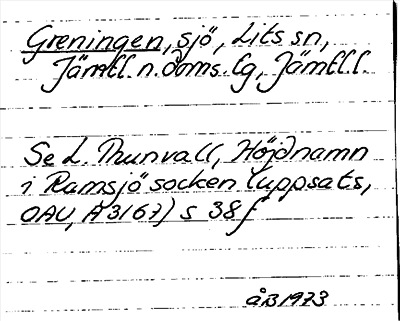 Greningen, sjö, Lits sn,
Jämtl. n. doms. lg, Jämtl. l.
Se L. Thunvall, Höjdnamn
i Ramsjö socken (uppsats,
OAU, A 3167) s 38 f
åB 1973